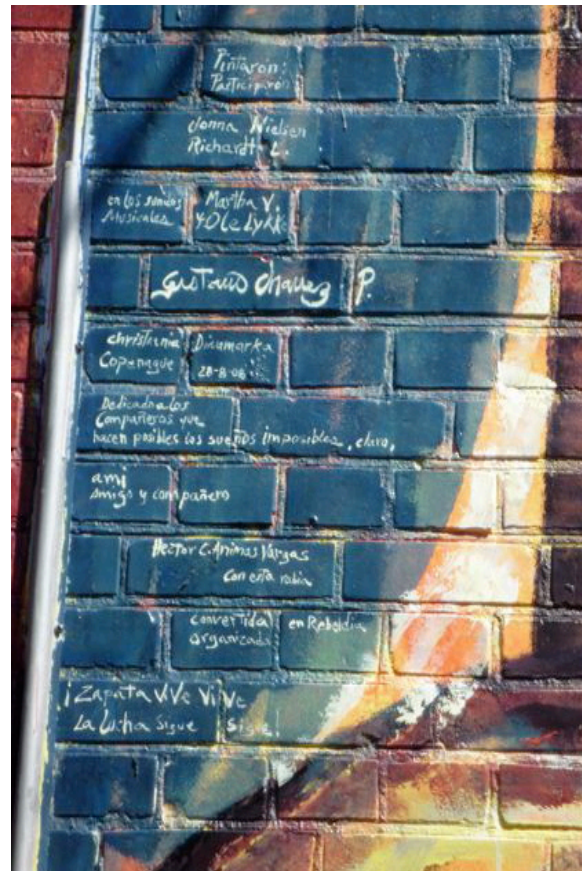 Pintaron:
Participaron
donna Nielsen
Richardt L.
en los sonidos Martha V.
Musicales y Ole Lykke
Gustavo Chavez P.
christiania Dinamarka
Copenague 28-8-08
Dedicadna los
Compañeros que
hacen posibles los sueños imposibles, claro,
a mi
Amigo y compañero
Hector C. Animas Vargas
Con esta rabia
convertida en Rebeldia
organizada
¡Zapata ViVe ViVe
La Lucha Sigue Sigue!